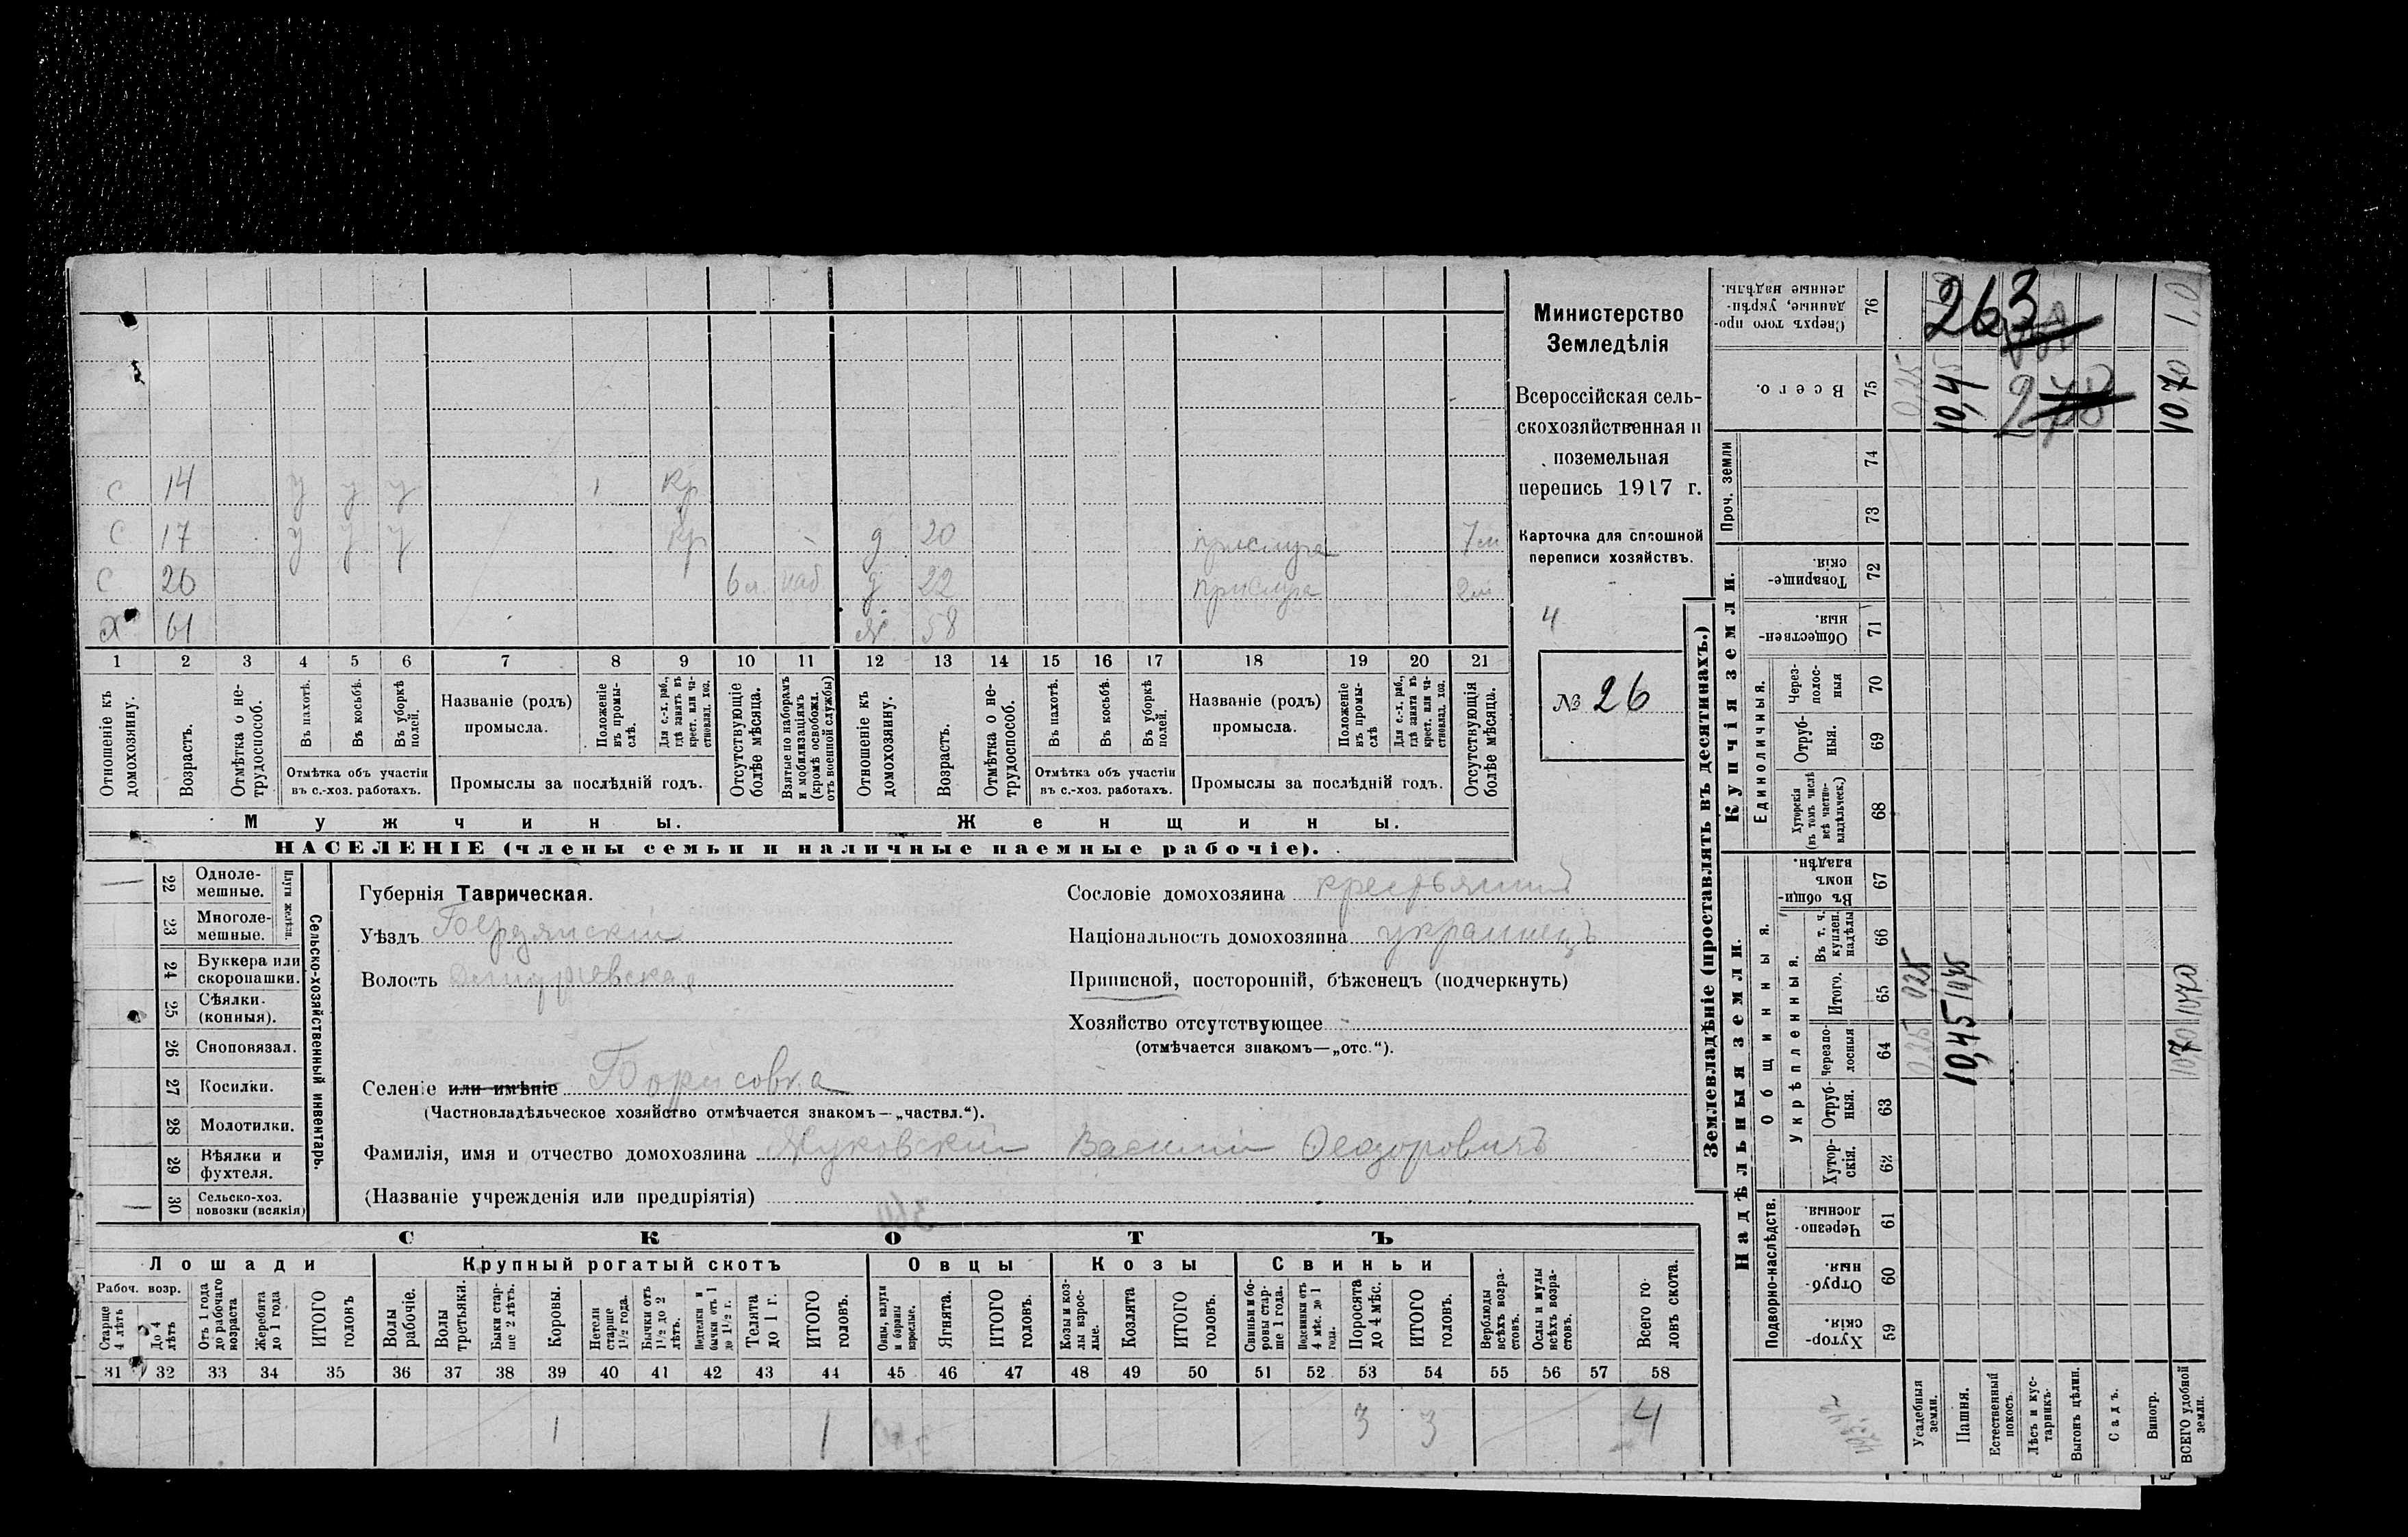 Министерство
Земледѣлія
Всероссійская сель-
скохозяйственная и
поземельная
перепись 1917 г.
Карточка для сплошной
переписи хозяйствъ.
4
№ 26
с 14 у у у 1 кр
с 17 у у у кр д 20 прислуга 7м
с 26 6 л. наб д 22 прислуга 2м
х 61 ж 58
1 2 3 4 5 6 7 8 9 10 11 12 13 14 15 16 17 18 19 20 21
Отношеніе къ домохозяину.
Возрастъ.
Отмѣтка о не-трудоспособ.
Въ пахотѣ.
Въ косьбѣ.
Въ уборкѣ полей.
Отмѣтка объ участіи
въ с.-хоз. работахъ.
Названіе (родъ)
промысла.
Положеніе въ промы-слѣ.
Для с.-х. раб., гдѣ занятъ въ крест. или ча-стновлад. хоз.
Промыслы за послѣдній годъ.
Отсутствующіе болѣе мѣсяца.
Взятые по наборамъ и мобилизаціямъ (кромѣ освобожд. отъ военной службы)
Отношеніе къ домохозяину.
Возрастъ.
Отмѣтка о не-трудоспособ.
Въ пахотѣ.
Въ косьбѣ.
Въ уборкѣ полей.
Отмѣтка объ участіи
въ с.-хоз. работахъ.
Названіе (родъ)
промысла.
Положеніе въ промы-слѣ
Для с.-х. раб., гдѣ занята въ крест. или ча-стновлад. хоз.
Промыслы за послѣдній годъ.
Отсутствующія болѣе мѣсяца.
Мужчины. Женщины.
НАСЕЛЕНІЕ (члены семьи и наличные наемные рабочіе).
Сельско-хозяйственный инвентарь.
Плуги желѣзн.
22 Одноле-мешные.
23 Многоле-мешные.
24 Буккера или скоропашки.
25 Сѣялки (конныя).
26 Сноповязал.
27 Косилки.
28 Молотилки.
29 Вѣялки и фухтеля.
30 Сельско-хоз. повозки (всякія)
Губернія Таврическая.
Уѣздъ Бердянскій
Волость Дмитріевская
Селеніе или имѣніе Борисовка
(Частновладѣльческое хозяйство отмѣчается знакомъ—„частвл.“).
Фамилія, имя и отчество домохозяина Жуковскій Василій Феодоровичъ
(Названіе учрежденія или предпріятія)
Сословіе домохозяина крестьянинъ
Національность домохозяина украинецъ
Приписной, посторонній, бѣженецъ (подчеркнуть)
Хозяйство отсутствующее
(отмѣчается знакомъ—„отс.“).
СКОТЪ
Лошади Крупный рогатый скотъ Овцы Козы Свиньи
Рабоч. возр.
Старше 4 лѣтъ
До 4 лѣтъ
Отъ 1 года до рабочаго возраста
Жеребята до 1 года
ИТОГО головъ
Волы рабочіе.
Волы третьяки.
Быки стар-ше 2 лѣтъ.
Коровы.
Нетели старше 1½ года.
Бычки отъ 1½ до 2 лѣтъ.
бычки отъ 1 до 1½ г.
Телята до 1 г.
ИТОГО головъ.
Овцы, валухи и бараны взрослые.
Ягнята.
ИТОГО головъ.
Козы и коз-лы взрос-лые.
Козлята
ИТОГО головъ.
Свиньи и бо-ровы стар-ше 1 года.
Подсвинки отъ 4 мѣс. до 1 года.
Поросята до 4 мѣс.
ИТОГО головъ.
Верблюды всѣхъ возра-стовъ.
Ослы и мулы всѣхъ возра-стовъ.
Всего го-ловъ скота.
31 32 33 34 35 36 37 38 39 40 41 42 43 44 45 46 47 48 49 50 51 52 53 54 55 56 57 58
1 1 3 3 4
Землевладѣніе (проставлять въ десятинахъ.)
Надѣльныя земли.
Купчія земли.
Проч. земли
Подворно-наслѣдств.
Общинныя.
Укрѣпленныя.
Единоличныя.
Хутор-скія. 59
Отруб-ныя. 60
Черезпо-лосныя. 61
Хутор-скія. 62
Отруб-ныя. 63
Черезпо-лосныя 64
Итого. 65
Въ т. ч. куплен. надѣлы 66
Въ общин-номъ владѣн. 67
Хуторскія (въ томъ числѣ всѣ частно-владѣльческ.) 68
Отруб-ныя. 69
Через-полос-ныя 70
Обществен-ныя. 71
Товарище-скія. 72
73
74
Всего. 75
Сверхъ того про-данные, укрѣп-ленные надѣлы. 76
Усадебныя земли. 0,25 0,25 0,25
Пашня. 10,45 10,45 10,45
Естественный покосъ.
Лѣсъ и кус-тарникъ.
Выгонъ цѣлин.
Садъ.
Виногр.
ВСЕГО удобной земли. 1070 1070 1070 1,0
263
278